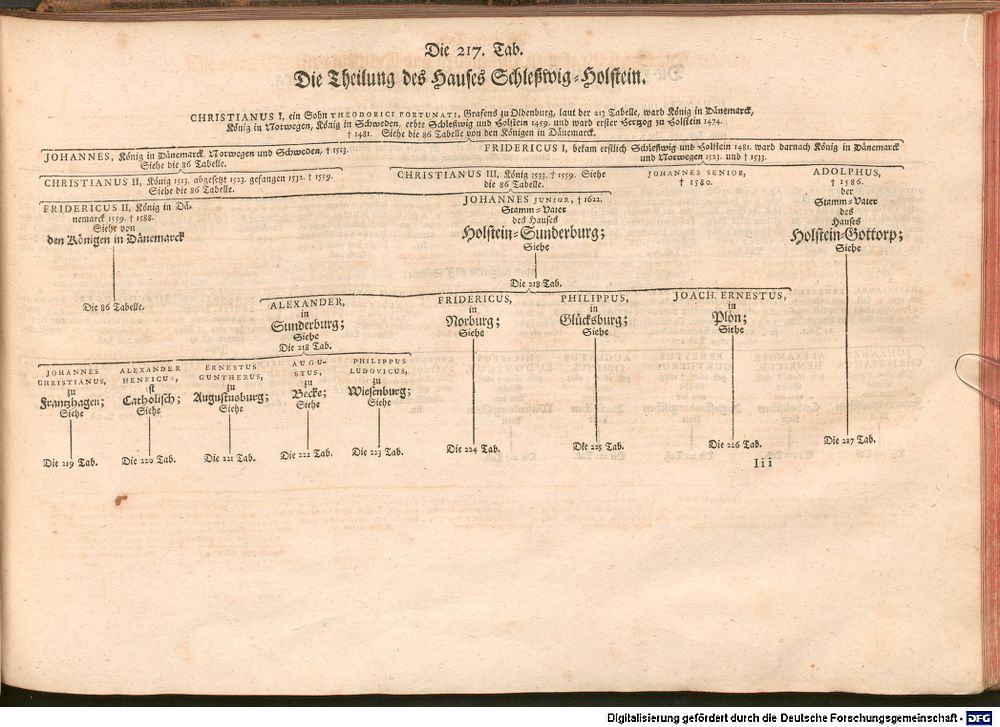 Die 217. Tab.
Die Theilung des Hauses Schleßwig-Holstein.
CHRISTIANUS I, ein Sohn THEODORICI FORTUNATI, Grafens zu Oldenburg, laut der 213 Tabelle, ward König in Dänemarck,
König in Norwegen, König in Schweden, erbte Schleßwig und Holstein 1459. und ward erster Hertzog in Holstein 1474.
† 1481. Siehe die 86 Tabelle von den Königen in Dänemarck.
JOHANNES, König in Dänemarck, Norwegen und Schweden, † 1513.
Siehe die 86 Tabelle.
FRIDERICUS I, bekam erstlich Schleßwig und Holstein 1481. ward darnach König in Dänemarck
und Norwegen 1523. und † 1533.
CHRISTIANUS II, König 1513. abgesetzt 1523. gefangen 1532. † 1559.
Siehe die 86 Tabelle.
CHRISTIANUS III, König 1533. † 1559. Siehe
die 86 Tabelle.
JOHANNES SENIOR,
† 1580.
ADOLPHUS,
† 1586.
der
Stamm-Vater
des
Hauses
Holstein-Gottorp;
Siehe
FRIDERICUS II, König in Dä-
nemarck 1559. † 1588.
Siehe von
den Königen in Dänemarck
JOHANNES JUNIOR, † 1622.
Stamm-Vater
des Hauses
Holstein-Sunderburg;
Siehe
Die 86 Tabelle.
Die 218 Tab.
ALEXANDER,
in
Sunderburg;
Siehe
Die 218 Tab.
FRIDERICUS,
in
Norburg;
Siehe
PHILIPPUS,
in
Glücksburg;
Siehe
JOACH. ERNESTUS,
in
Plön;
Siehe
JOHANNES
CHRISTIANUS,
zu
Frantzhagen;
Siehe
ALEXANDER
HENRICUS,
ist
Catholisch;
Siehe
ERNESTUS
GUNTHERUS,
zu
Augustusburg;
Siehe
AUGU-
STUS,
zu
Becke;
Siehe
PHILIPPUS
LUDOVICUS,
zu
Wiesenburg;
Siehe
Die 219 Tab.
Die 220 Tab.
Die 221 Tab.
Die 222 Tab.
Die 223 Tab.
Die 224 Tab.
Die 225 Tab.
Die 226 Tab.
Die 227 Tab.
Iii
Digitalisierung gefördert durch die Deutsche Forschungsgemeinschaft - DFG